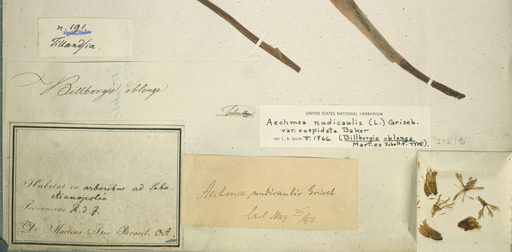 n. 191.
Tillandsia.
Billbergia oblonga
UNITED STATES NATIONAL HERBARIUM
Aechmea nudicaulis (L.) Griseb.
var. cuspidata Baker
det. L. B. Smith V. 1966. (Billbergia oblonga
Mart. ex Schult. f. TYPE)
Habitat in arboribus ad Seba-
stianopolin
Provinciae R. d. J.
Dr. Martius Iter Brasil.
Aechmea nudicaulis Griseb
Carl Mez